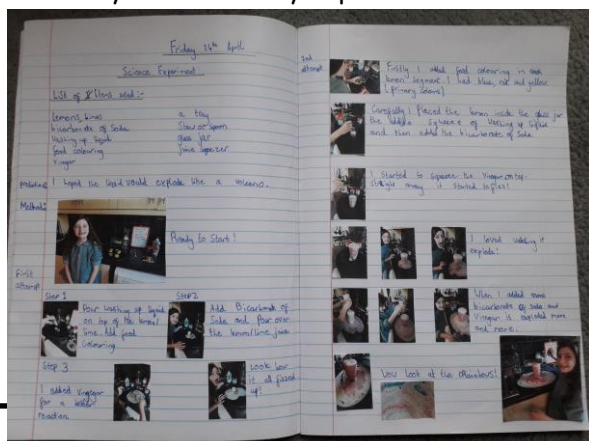 Friday 24th April
Science Experiment
List of Items used :-
Lemons, limes
bicarbonate of Soda
Washing up liquid
food colouring
Vinegar
a tray
Straw or Spoon
glass jar
juice squeezer
I hoped the liquid would explode like a volcano.
Method:
Ready to Start!
First
attempt
Step 1
Pour washing up liquid
on top of the lemon/
lime. Add food
Colouring
Step 2
Add Bicarbonate of
Soda and Pour over
the lemon/lime juice
Step 3
I added vinegar
for a better
reaction.
Look how
it all fizzed
up!
2nd
attempt
Firstly I added food colouring in each
lemon segment. I had blue, red and yellow
(primary colours)
Carefully I placed the lemon inside the glass jar
Squeeze of Washing up liquid
and then added the bicarbonate of Soda.
I started to squeeze the Vinegar on top-
Straight away it started to fizz!
I loved watching it
explode!
When I added more
bicarbonate of Soda and
Vinegar it exploded more
and more.
Wow look at the Rainbows!